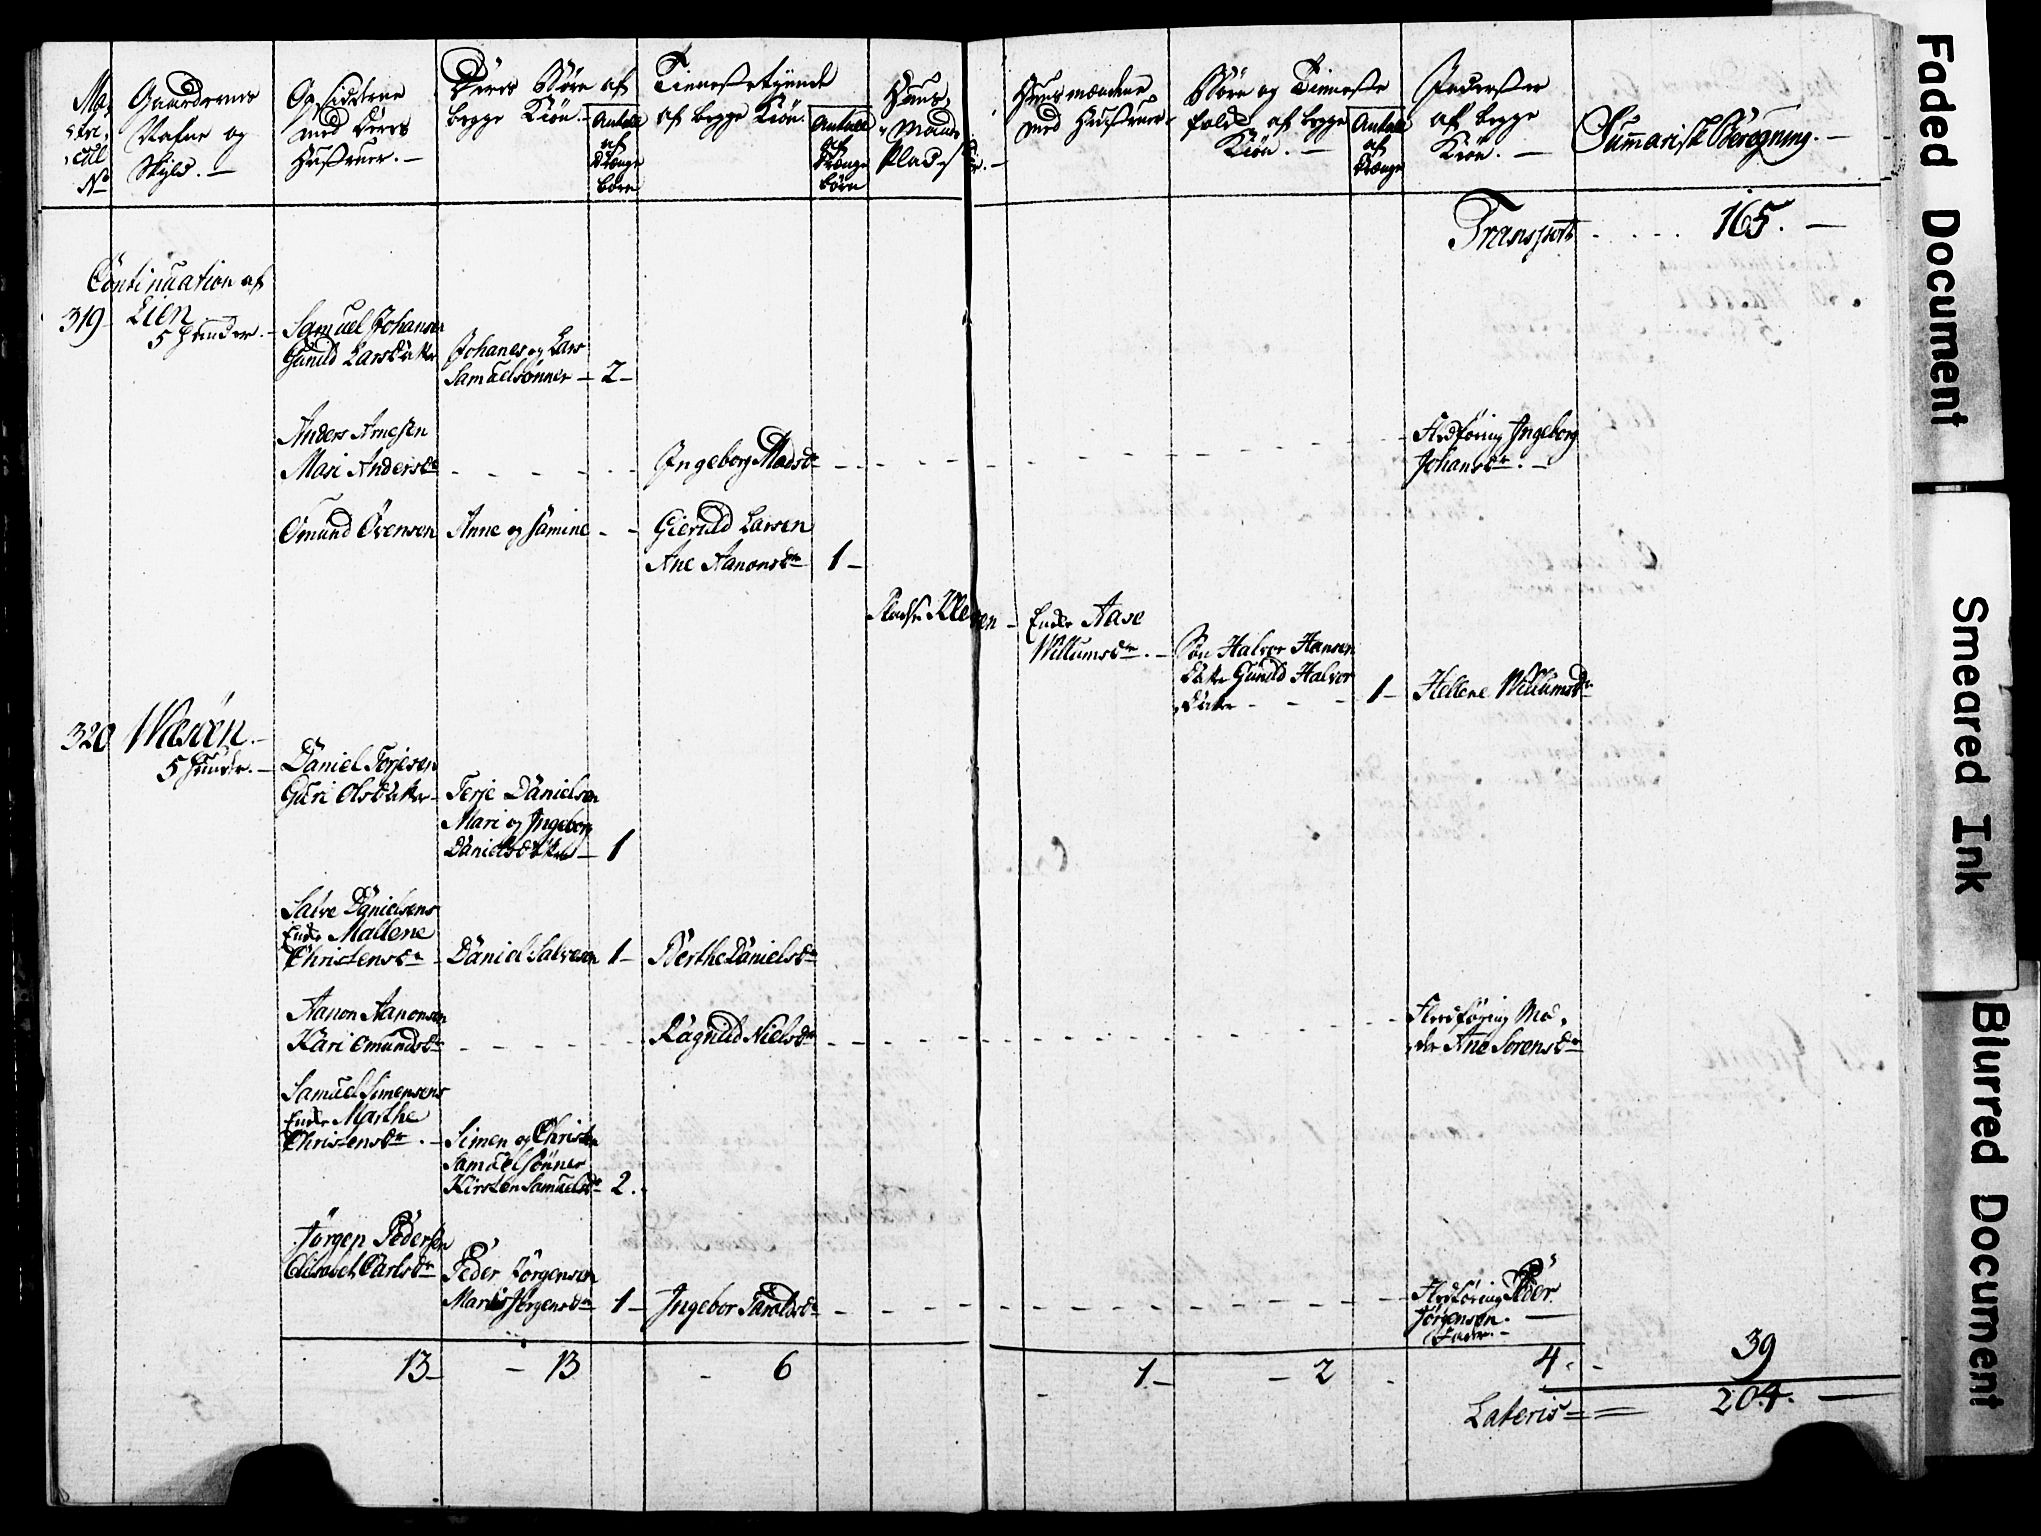 Ma,
tri,
cul
No
Gaardernes
Nafne og
Skyld. —
Opsidderne
med deres
Hustruer. —
Deres Børn af
begge Kiøn. —
Antall
af
Drænge
børn
Tienestetyende
af begge Kiøn.
Antall
af
Drænge
børn
Huus,
Mands
Plads
Huusmændene
med Hustruer
Børn og Tieneste
folck af begge
Kiøn. —
Antall
af
Drænge
Inderster
af begge
Kiøn. —
Summarisk Beregning. —
Transport 165. —
Continuation af
319 Lien
5 Huuder. —
Samuel Johansen
Gunild Larsdatter
Johanes og Lars
Samuelsønner — 2 —
Anders Arnesen
Mari Andersdr
Ingeborg Madsdr
Flodføring Ingeborg
Johansdr. —
Omund Evensen Anne og Samine
Gieruld Larsen
Ane Aanonsdr 1 —
Pladsen Kleven —
Enke Aase
Willumsdr. —
Søn Halvor Hansen
Datter Gunild Halvor
datter 1 — Hellene Willumsdr
320 Wæsøen —
5 Huuder. —
Daniel Terjesen
Guri Olsdatter
Terje Danielsen
Mari og Ingeborg
Danielsdøttre — 1
Salve Danielsens
Enke Mallene
Christensdr Daniel Salvesen 1 — Berthe Danielsdr
Aanon Aanonsen
Kari Omundsdr
Ragnild Nielsdr
Flodføring Mo,
der Ane Sørensdr
Samuel Simensens
Enke Marthe
Christensdr. —
Simen og Christen
Samuelsønner
Kirsten Samuelsdr 2.
Jørgen Pedersen
Elisabet Carlsdr
Peder Jørgensen
Maria Jørgensdr 1 — Ingebor Taraldsdr
Flodføring Peder
Jørgensen. —
Fader. —
13 — 13 6 1 — 2 4. 39
Lateris 204. —
Faded Document
Smeared Ink
Blurred Document